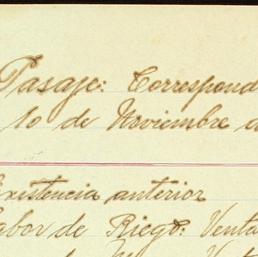 Pasaje: Correspond
10 de Noviembre d
Existencia anterior
Labor de Riego: Venta